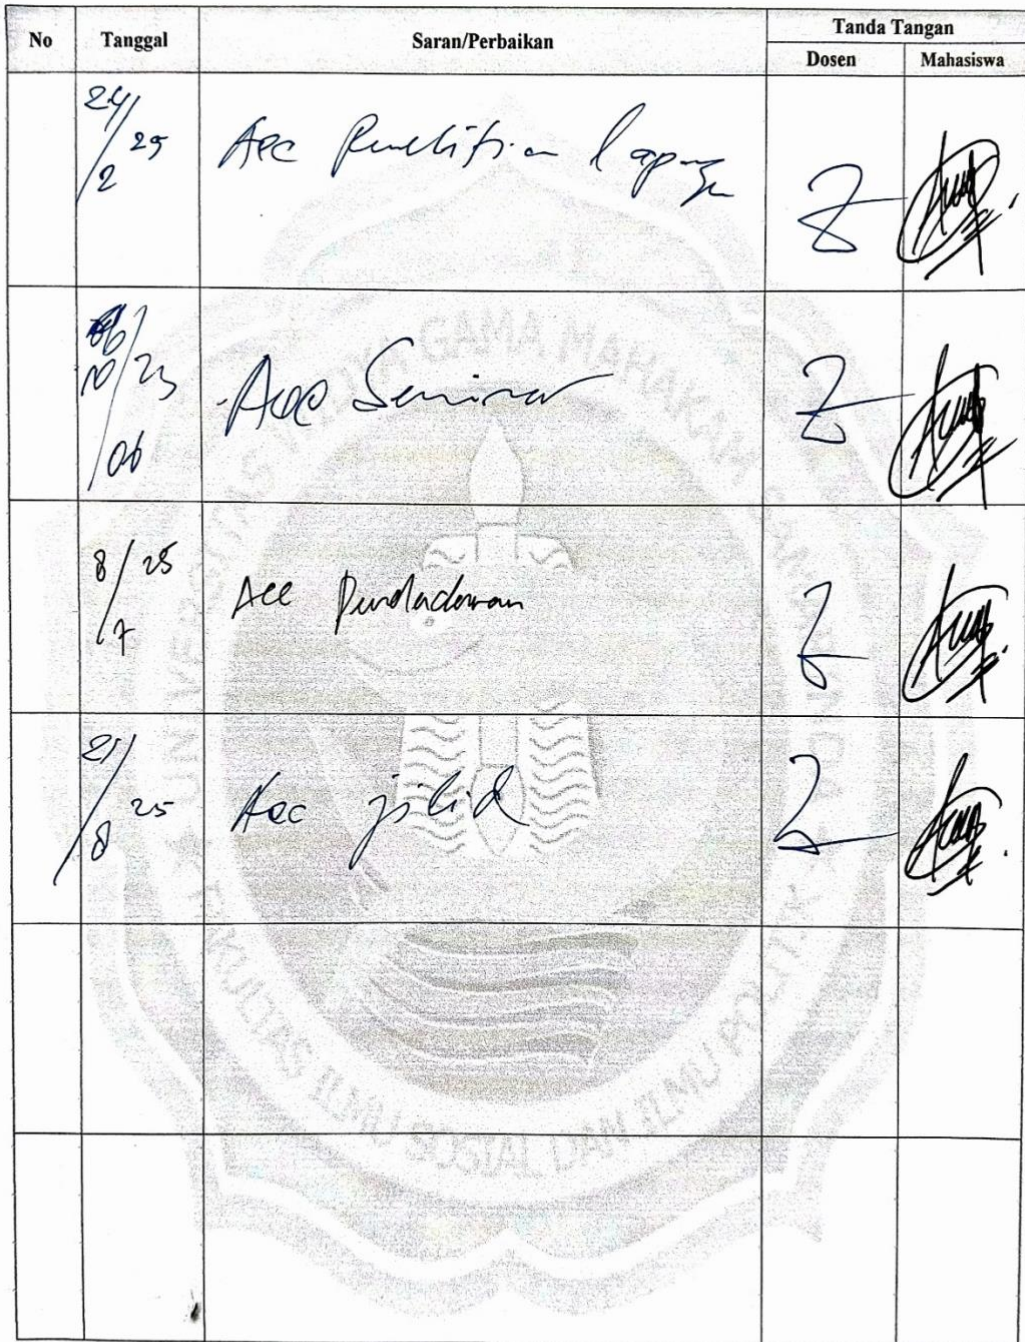 No Tanggal Saran/Perbaikan Tanda Tangan
Dosen Mahasiswa
24/2 25 Acc Penelitian lapangan
10/06 25 Acc Seminar
8/7 25 Acc Pendadaran
21/8 25 Acc jilid
UNIVERSITAS WIDYA GAMA MAHAKAM SAMARINDA
FAKULTAS ILMU SOSIAL DAN ILMU POLITIK